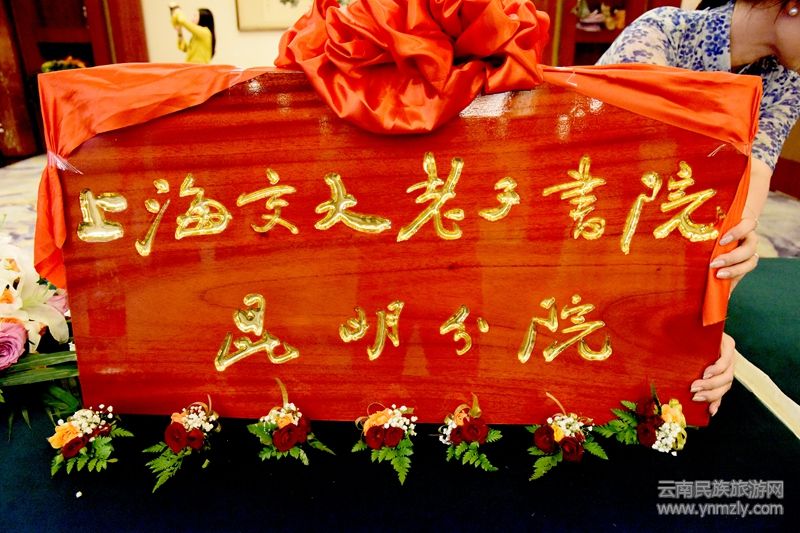 上海交大老子书院
昆明分院
云南民族旅游网
www.ynmzly.com